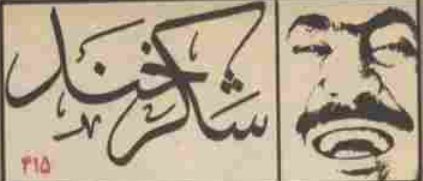 شکرخند
۴۱۵